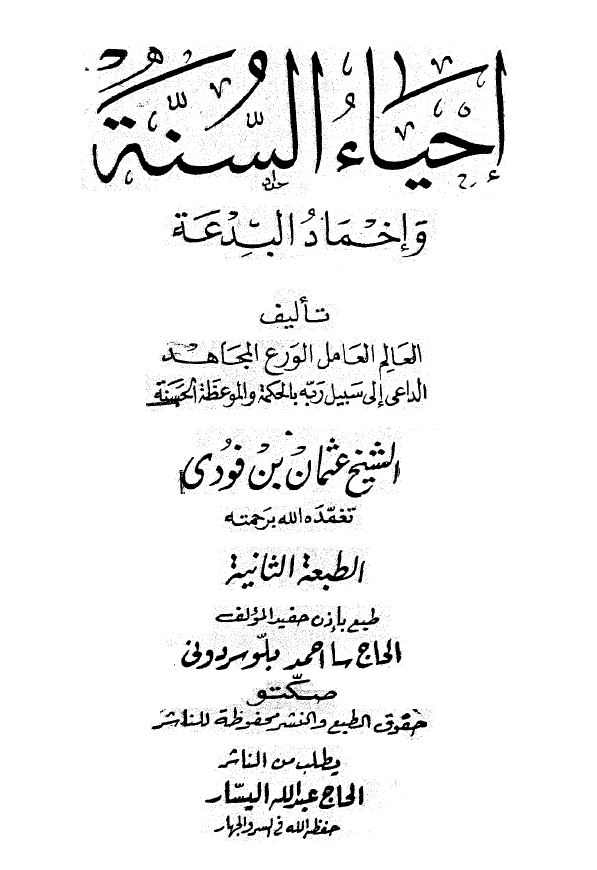 إِحْيَاءُ السُّنَّةِ
وَإِخْمَادُ الْبِدْعَة
تأليف
العالم العامل الورع المجاهد
الداعى إلى سبيل ربّه بالحكمة والموعظة الحسنة
الشيخ عثمان بن فودى
تغمّده الله برحمته
الطبعة الثانية
طبع بإذن حفيد المؤلف
الحاج سا احمد بلّو سردونى
صكّتو
حقوق الطبع والنشر محفوظة للناشر
يطلب من الناشر
الحاج عبدالله اليسّار
حفظه الله فى السر والجهار